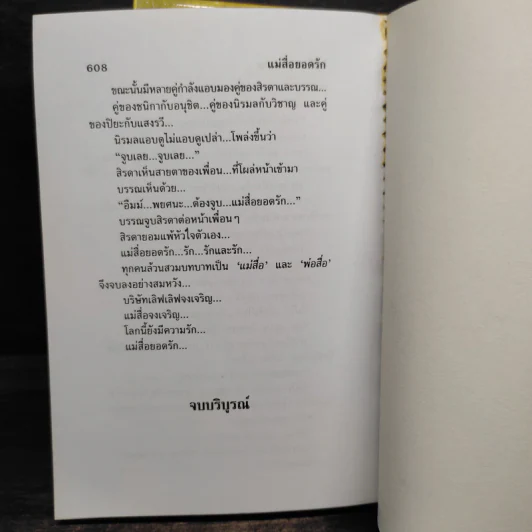 608 แม่สื่อยอดรัก
ขณะนั้นมีหลายคู่กำลังแอบมองคู่ของสิรดาและบรรณ...
คู่ของชนิกากับอนุชิต...คู่ของนิรมลกับวิชาญ และคู่
ของปิยะกับแสงรวี...
นิรมลแอบดูไม่แอบดูเปล่า...โพล่งขึ้นว่า
“จูบเลย...จูบเลย...”
สิรดาเห็นสายตาของเพื่อน...ที่โผล่หน้าเข้ามา
บรรณเห็นด้วย...
“อืมม์...พยศนะ...ต้องจูบ...แม่สื่อยอดรัก...”
บรรณจูบสิรดาต่อหน้าเพื่อนๆ
สิรดายอมแพ้หัวใจตัวเอง...
แม่สื่อยอดรัก...รัก...รักและรัก...
ทุกคนล้วนสวมบทบาทเป็น ‘แม่สื่อ’ และ ‘พ่อสื่อ’
จึงจบลงอย่างสมหวัง...
บริษัทเลิฟเลิฟจงเจริญ...
แม่สื่อจงเจริญ...
โลกนี้ยังมีความรัก...
แม่สื่อยอดรัก...
จบบริบูรณ์